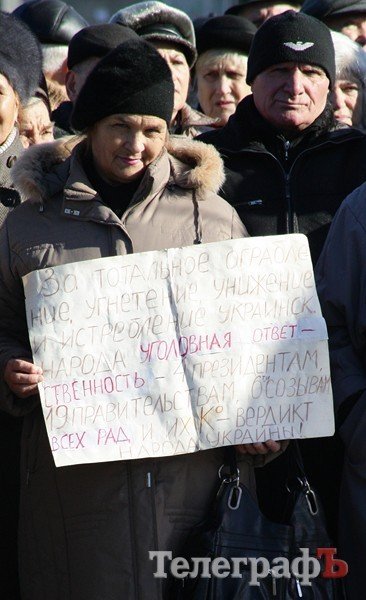 За тотальное ограбле
ние, угнетение унижение
и истребление украинск.
народа уголовная ответ-
ственность - 4 президентам,
19 правительствам, 6 созывам
всех рад и их Ко вердикт
народа Украины!
ТелеграфЪ